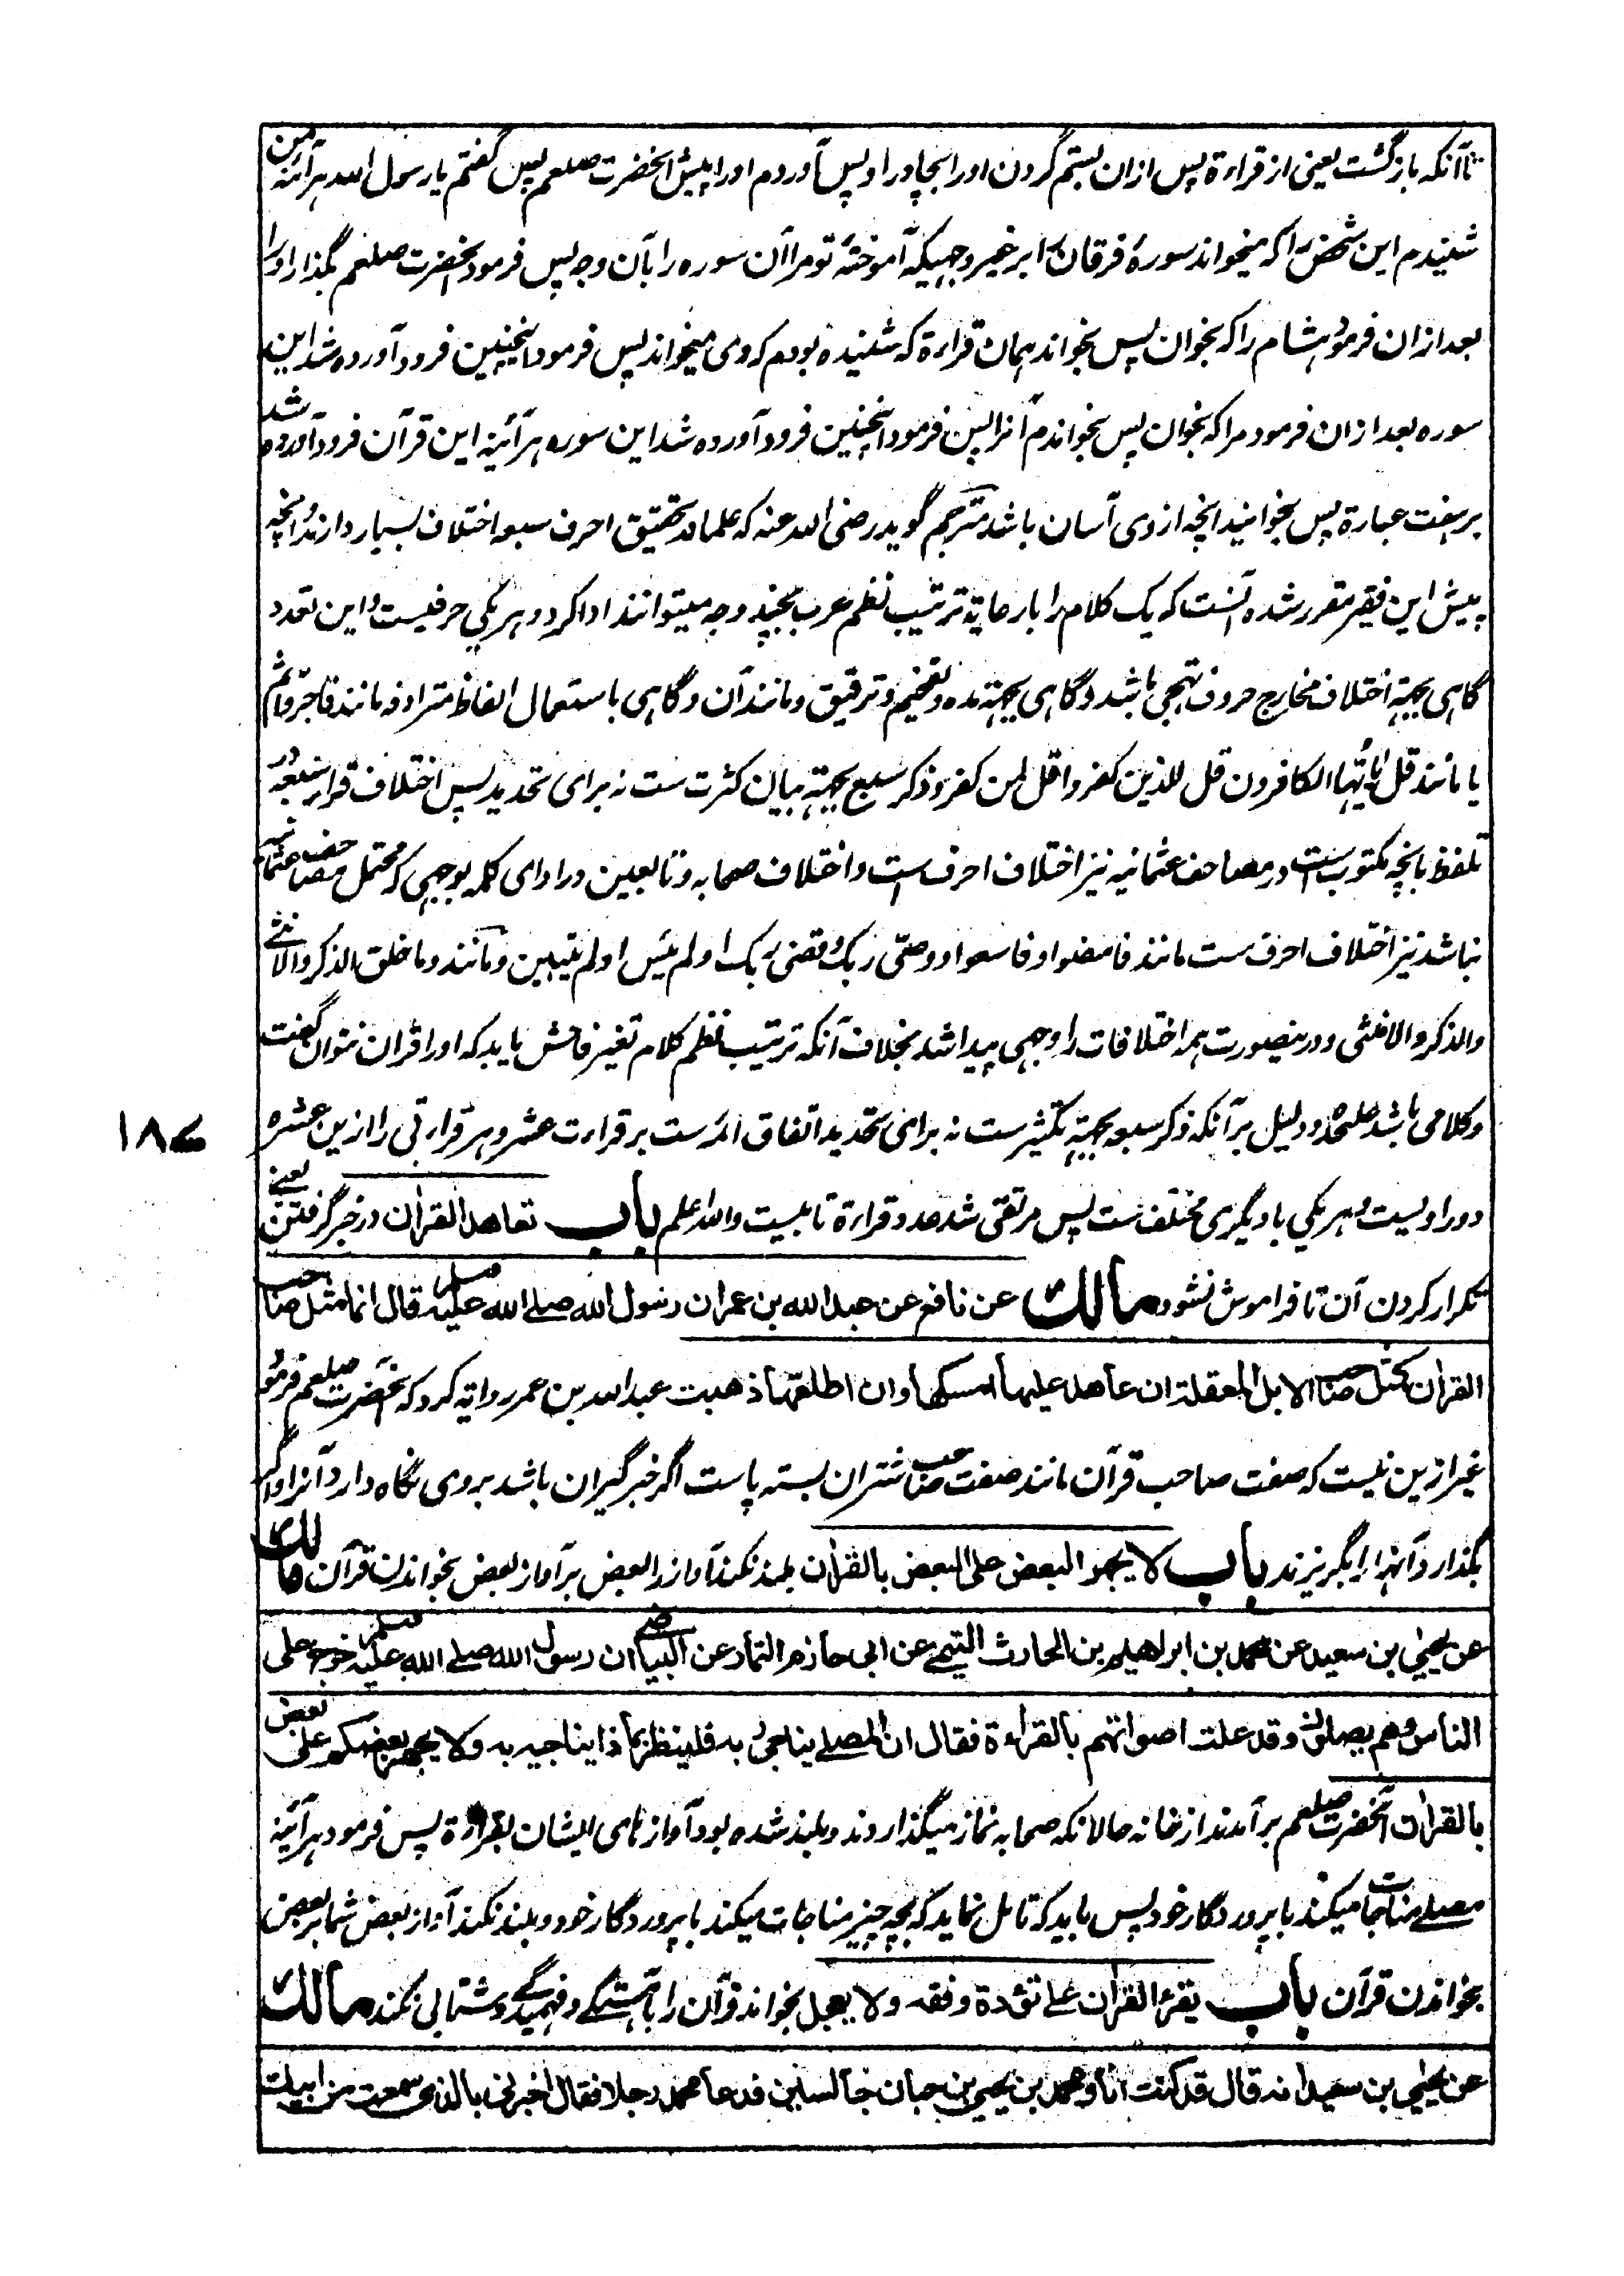 تاآنکه بازگشت یعنی از قراءة پس ازان بستم گردن او را بچادر او پس آوردم او را پیش آنحضرت صلعم پس گفتم یا رسول الله هرآئنه من
شنیدم این شخص را که میخواند سورۂ فرقان را بر غیر وجهیکه آموختۀ تو مرا آن سوره را بآن وجه پس فرمود آنحضرت صلعم بگذار او را
بعد ازان فرمود هشام را که بخوان پس بخواند همان قراءة که شنیده بودم که وی میخواند پس فرمود اینچنین فرود آورده شد این
سوره بعد ازان فرمود مرا که بخوان پس بخواندم آنرا پس فرمود اینچنین فرود آورده شد این سوره هرآئینه این قرآن فرود آورده شد
بر هفت عبارة پس بخوانید انچه از وی آسان باشد مترجم گوید رضی الله عنه که علما در تحقیق احرف سبعه اختلاف بسیار دارند و انچه
پیش این فقیر مقرر شده آنست که یک کلام را با رعایة ترتیب نظم عرب بچند وجه میتوانند ادا کرد و هر یکی حرفیست و این تعدد
گاهی بجهة اختلاف مخارج حروف تهجی باشد و گاهی بجهة مده و تفخیم و ترقیق و مانند آن و گاهی باستعمال الفاظ مترادفه مانند فاجر و اثیم
یا مانند قل یا ایها الکافرون قل للذین کفروا قل لمن کفر و ذکر سبع بجهة بیان کثرت ست نه برای تحدید پس اختلاف قراء سبعه در
تلفظ بانچه مکتوب ست در مصاحف عثمانیه نیز اختلاف احرف ست و اختلاف صحابه و تابعین در ادای کلمه بوجهی که محتمل مصاحف عثمانیه
نباشد نیز اختلاف احرف ست مانند فامضوا و فاسعوا و وصّی ربک و قضی ربک او لم ییئس او لم یتبین و مانند و ما خلق الذکر والانثی
والذکر والانثی و درینصورت همه اختلافات را وجهی پیدا شد بخلاف آنکه ترتیب نظم کلام تغیر فاحش یابد که او را قرآن نتوان گفت
و کلامی باشد علیحده و دلیل برآنکه ذکر سبعه بجهة تکثیر ست نه برای تحدید اتفاق ائمه ست بر قراءت عشر و هر قراءتی را ازین عشره
۱۸۷
دو راویست و هر یکی با دیگری مختلف ست پس مرتقی شد عدد قراءة تا بیست والله اعلم باب تعاهد القرآن در خبر گرفتن یعنے
تکرار کردن آن تا فراموش نشود مالک عن نافع عن عبد الله بن عمر ان رسول الله صلے الله علیه وسلم قال انما مثل صاحب
القرآن کمثل صاحب الابل المعقلة ان عاهد علیها امسکها وان اطلقها ذهبت عبدالله بن عمر روایة کرد که آنحضرت صلعم فرمود
غیر ازین نیست که صفت صاحب قرآن مانند صفت صاحب شتران بسته پاست اگر خبر گیران باشد بر وی نگاه دارد آنرا و اگر
بگذارد آنها را بگریزند باب لا یجهر البعض علی البعض بالقرآن بلند نکند آواز را بعض بر آواز بعض بخواندن قرآن مالک
عن یحیی بن سعید عن محمد بن ابراهیم بن الحارث التیمے عن ابی حازم التمار عن البیاضے ان رسول الله صلے الله علیه وسلم خرج علی
الناس وهم یصلون وقد علت اصواتهم بالقراءة فقال ان المصلے یناجی ربه فلینظر بما ذا یناجیه به ولا یجهر بعضکم علی بعض
بالقرآن آنحضرت صلعم برآمدند از خانه حالانکه صحابه نماز میگذاردند و بلند شده بود آوازهای ایشان بقراءة پس فرمود هرآئینه
مصلے مناجات میکند با پروردگار خود پس باید که تامل نماید که بچه چیز مناجات میکند با پروردگار خود و بلند نکند آواز بعض شما بر بعض
بخواندن قرآن باب یقرء القرآن علے تؤدة وفقه ولا یعجل بخواند قرآن را بآهستگے و فهمیدگے و شتابی نکند مالک
عن یحیی بن سعید انه قال قد کنت انا ومحمد بن یحیی بن حبان جالسین فدعا محمد رجلا فقال اخبرنی بالذی سمعت من ابیك